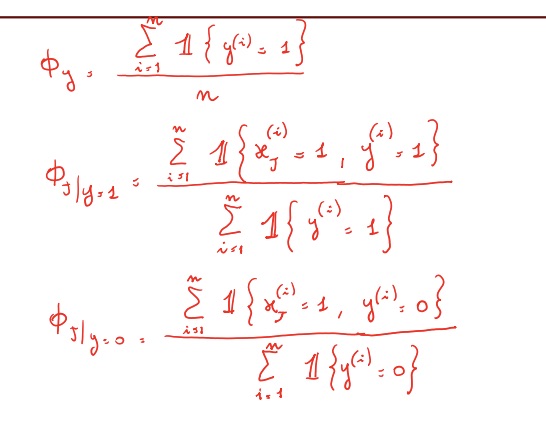 ϕ_y = \frac{\sum_{i=1}^{n} 𝟙\{ y^{(i)} = 1 \}}{n}
ϕ_{J|y=1} = \frac{\sum_{i=1}^{n} 𝟙\{ x_J^{(i)} = 1, y^{(i)} = 1 \}}{\sum_{i=1}^{n} 𝟙\{ y^{(i)} = 1 \}}
ϕ_{J|y=0} = \frac{\sum_{i=1}^{n} 𝟙\{ x_J^{(i)} = 1, y^{(i)} = 0 \}}{\sum_{i=1}^{n} 𝟙\{ y^{(i)} = 0 \}}